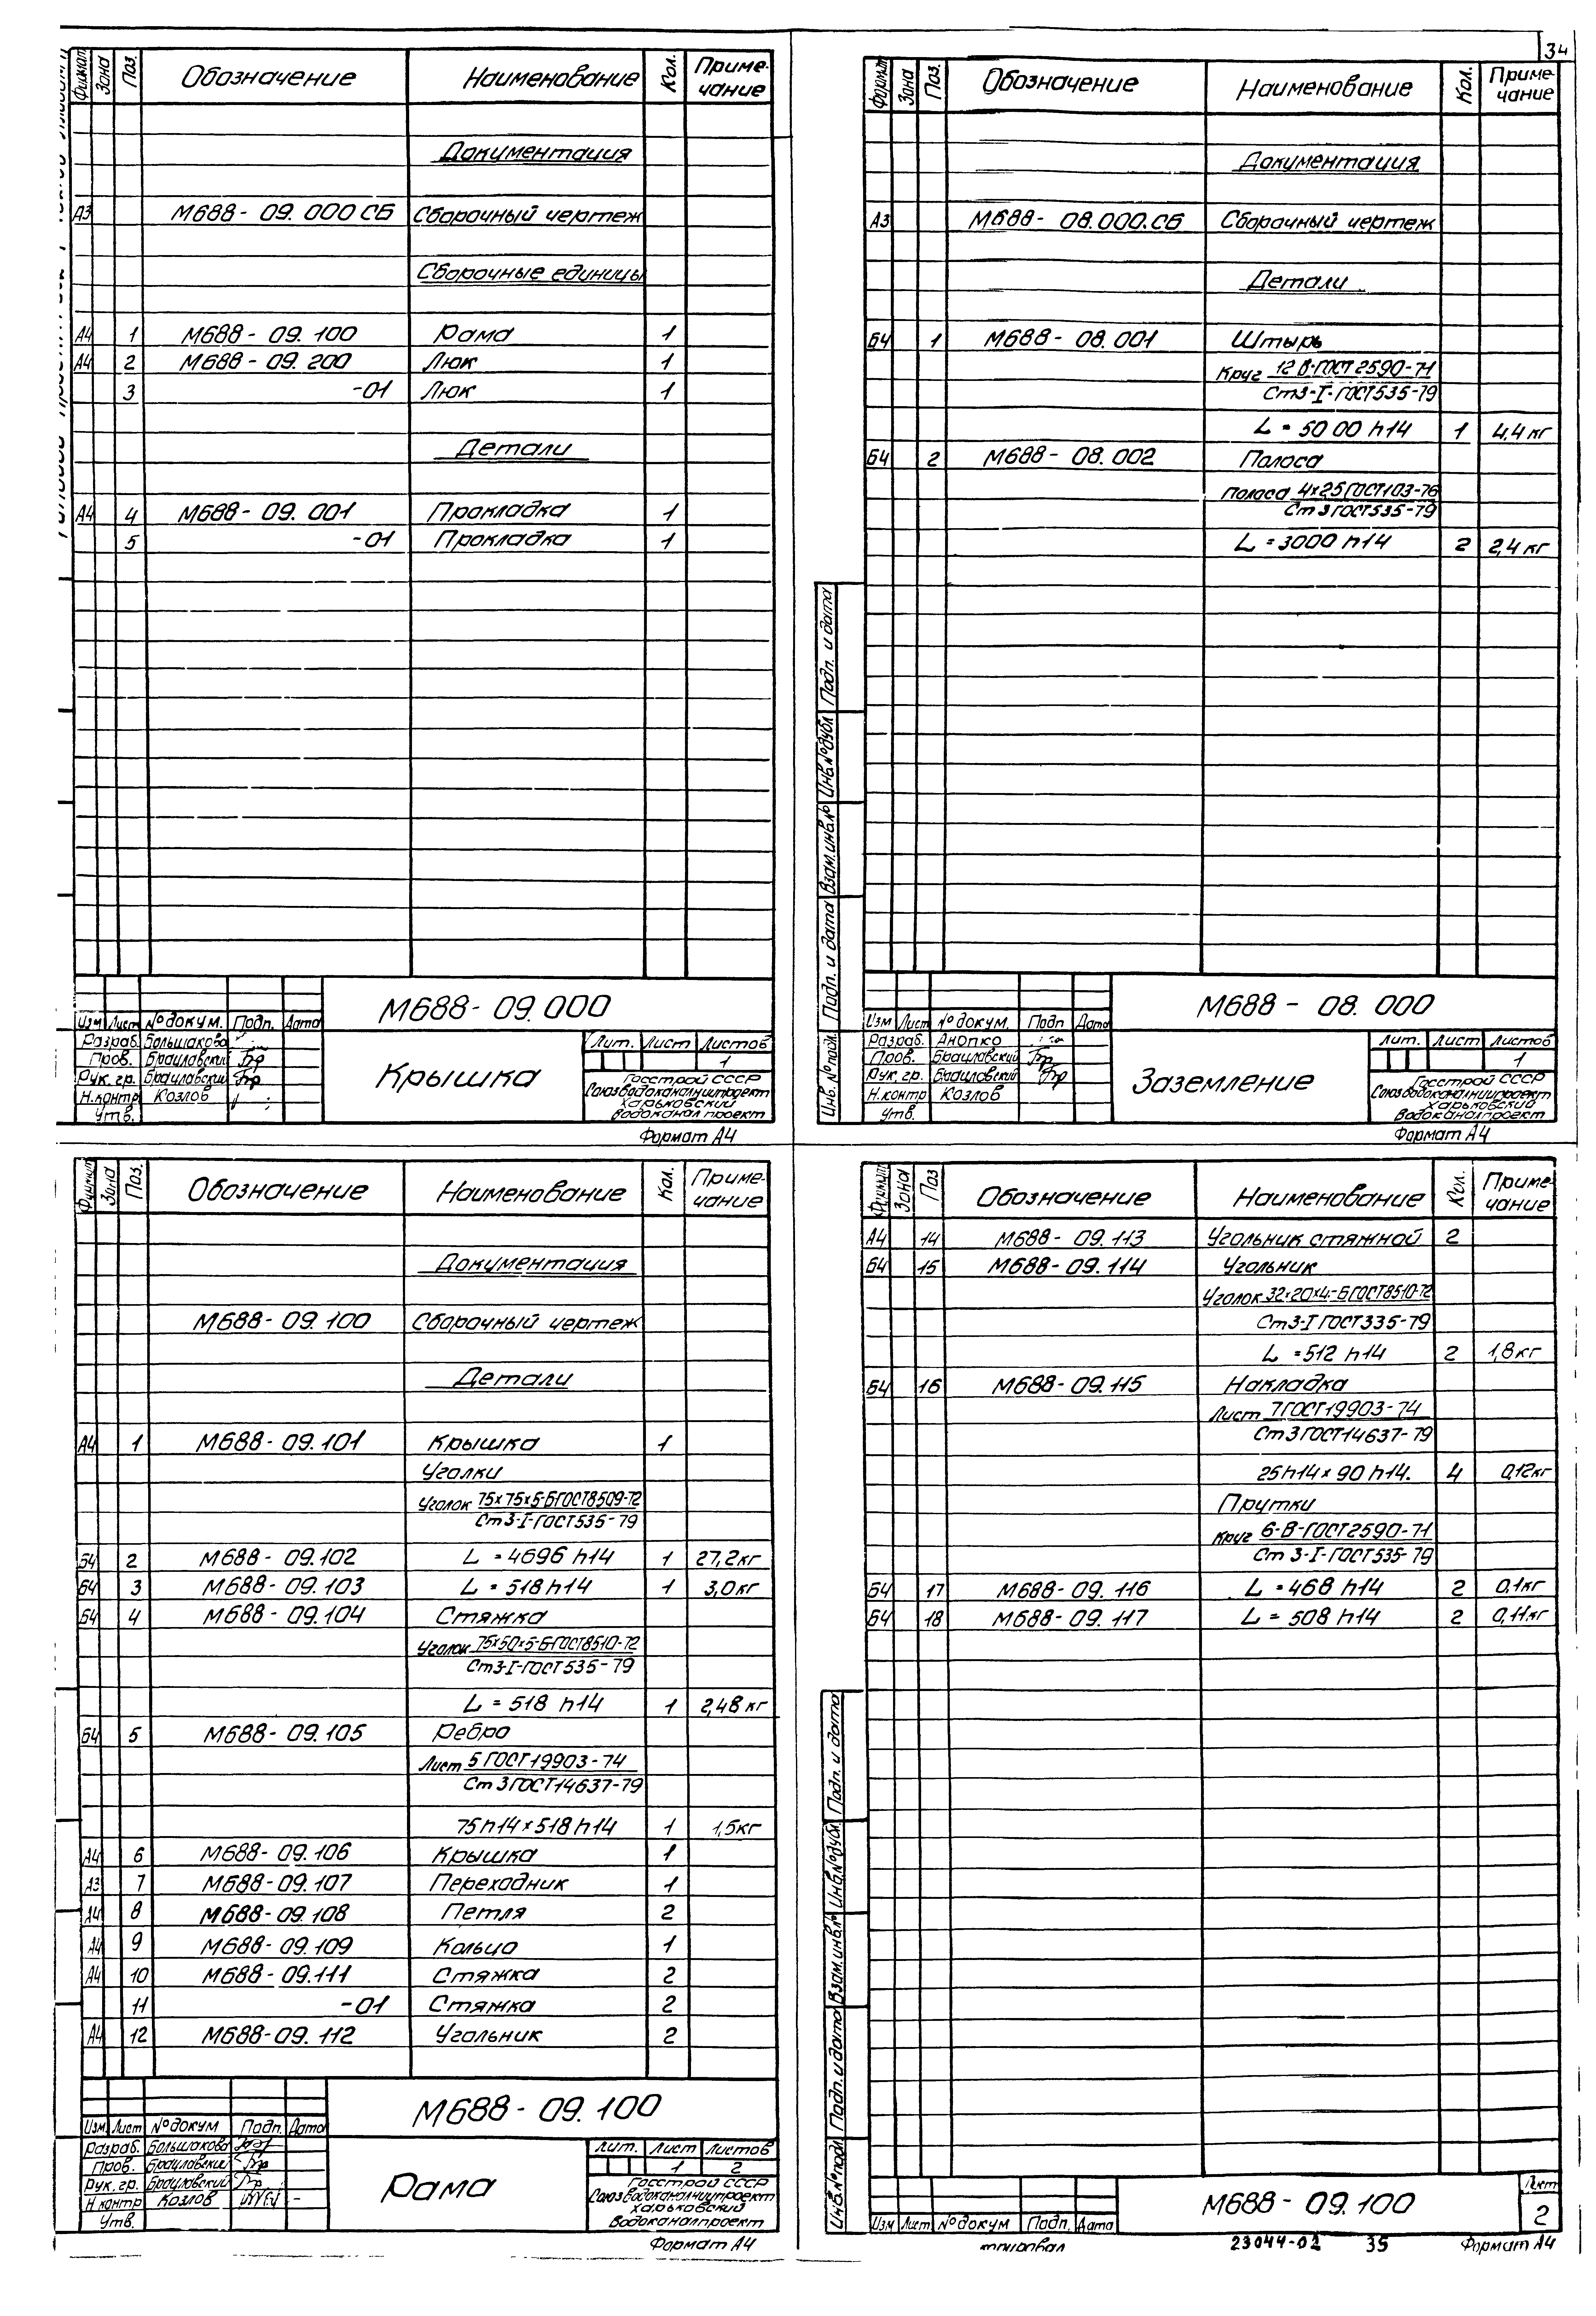 34
Формат Зона Поз. Обозначение Наименование Кол. Примечание
Документация
А3 М688-09.000СБ Сборочный чертеж
Сборочные единицы
А4 1 М688-09.100 Рама 1
А4 2 М688-09.200 Люк 1
3 -01 Люк 1
Детали
А4 4 М688-09.001 Прокладка 1
5 -01 Прокладка 1
М688-09.000
Изм Лист № докум. Подп. Дата
Разраб. Большакова
Пров. Браиловский
Рук. гр. Браиловский
Н.контр Козлов
Утв.
Крышка
Лит. Лист Листов
1
Госстрой СССР
Союзводоканалниипроект
Харьковский
Водоканалпроект
Формат А4
Формат Зона Поз. Обозначение Наименование Кол. Примечание
Документация
А3 М688-08.000.СБ Сборочный чертеж
Детали
Б4 1 М688-08.001 Штырь
Круг 12 В-ГОСТ2590-71
Ст3-I-ГОСТ535-79
L = 5000 h14 1 4,4 кг
Б4 2 М688-08.002 Полоса
Полоса 4×25ГОСТ103-76
Ст3ГОСТ535-79
L = 3000 h14 2 2,4 кг
Подп. и дата
Инв.№дубл
Взам.инв.№
Подп. и дата
Инв.№ подл.
М688-08.000
Изм Лист № докум. Подп Дата
Разраб. Анопко
Пров. Браиловский
Рук. гр. Браиловский
Н.контр Козлов
Утв.
Заземление
Лит. Лист Листов
1
Госстрой СССР
Союзводоканалниипроект
Харьковский
Водоканалпроект
Формат А4
Формат Зона Поз. Обозначение Наименование Кол. Примечание
Документация
М688-09.100 Сборочный чертеж
Детали
А4 1 М688-09.101 Крышка 1
Уголки
Уголок 75×75×5-БГОСТ8509-72
Ст3-I-ГОСТ535-79
Б4 2 М688-09.102 L = 4696 h14 1 27,2кг
Б4 3 М688-09.103 L = 518h14 1 3,0кг
Б4 4 М688-09.104 Стяжка
Уголок 75×50×5-БГОСТ8510-72
Ст3-I-ГОСТ535-79
L = 518 h14 1 2,48 кг
Б4 5 М688-09.105 Ребро
Лист 5 ГОСТ19903-74
Ст3ГОСТ14637-79
75h14×518h14 1 1,5кг
А4 6 М688-09.106 Крышка 1
А3 7 М688-09.107 Переходник 1
А4 8 М688-09.108 Петля 2
А4 9 М688-09.109 Кольцо 1
А4 10 М688-09.111 Стяжка 2
11 -01 Стяжка 2
А4 12 М688-09.112 Угольник 2
М688-09.100
Изм. Лист № докум Подп. Дата
Разраб. Большакова
Пров. Браиловский
Рук. гр. Браиловский
Н контр Козлов
Утв.
Рама
Лит. Лист Листов
1 2
Госстрой СССР
Союзводоканалниипроект
Харьковский
Водоканалпроект
Формат А4
Формат Зона Поз Обозначение Наименование Кол. Примечание
А4 14 М688-09.113 Угольник стяжной 2
Б4 15 М688-09.114 Угольник
Уголок 32×20×4-БГОСТ8510-72
Ст3-I ГОСТ335-79
L = 512 h14 2 1,8кг
Б4 16 М688-09.115 Накладка
Лист 7ГОСТ19903-74
Ст3ГОСТ14637-79
25h14×90h14. 4 0,12кг
Прутки
Круг 6-В-ГОСТ2590-71
Ст 3-I-ГОСТ535-79
Б4 17 М688-09.116 L = 468 h14 2 0,1кг
Б4 18 М688-09.117 L = 508 h14 2 0,11кг
Подп. и дата
Инв.№дубл.
Взам.инв.№
Подп. и дата
Инв.№ подл.
М688-09.100
Лист
2
Изм Лист № докум Подп. Дата
23044-02 35 Формат А4